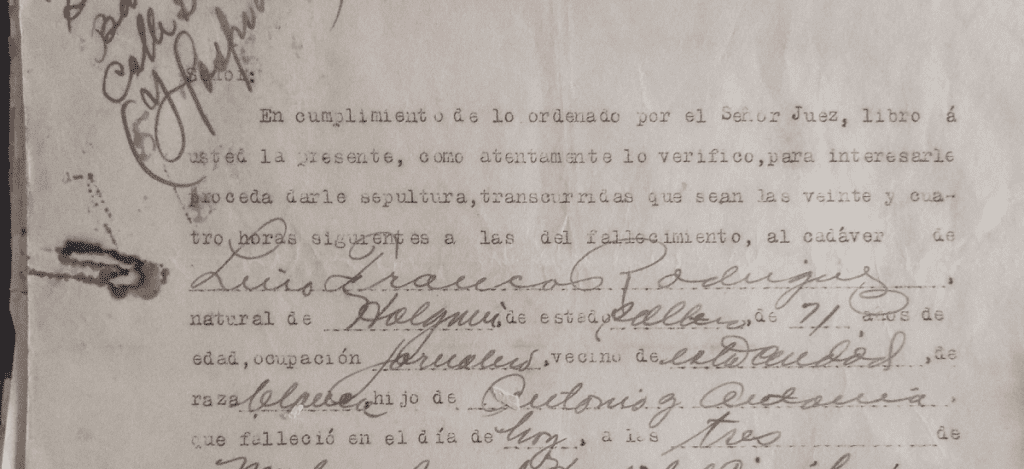 Calle
Señor:
En cumplimiento de lo ordenado por el Señor Juez, libro á
usted la presente, como atentamente lo verifico,para interesarle
proceda darle sepultura,transcurridas que sean las veinte y cua-
tro horas siguientes a las del fallecimiento, al cadáver de
Luis Francos Rodriguez,
natural de Holguin,de estado soltero,de 71 años de
edad,ocupación jornalero,vecino de esta Ciudad,de
raza blanca,hijo de Antonio y Antonia.
que falleció en el día de hoy, a las tres de